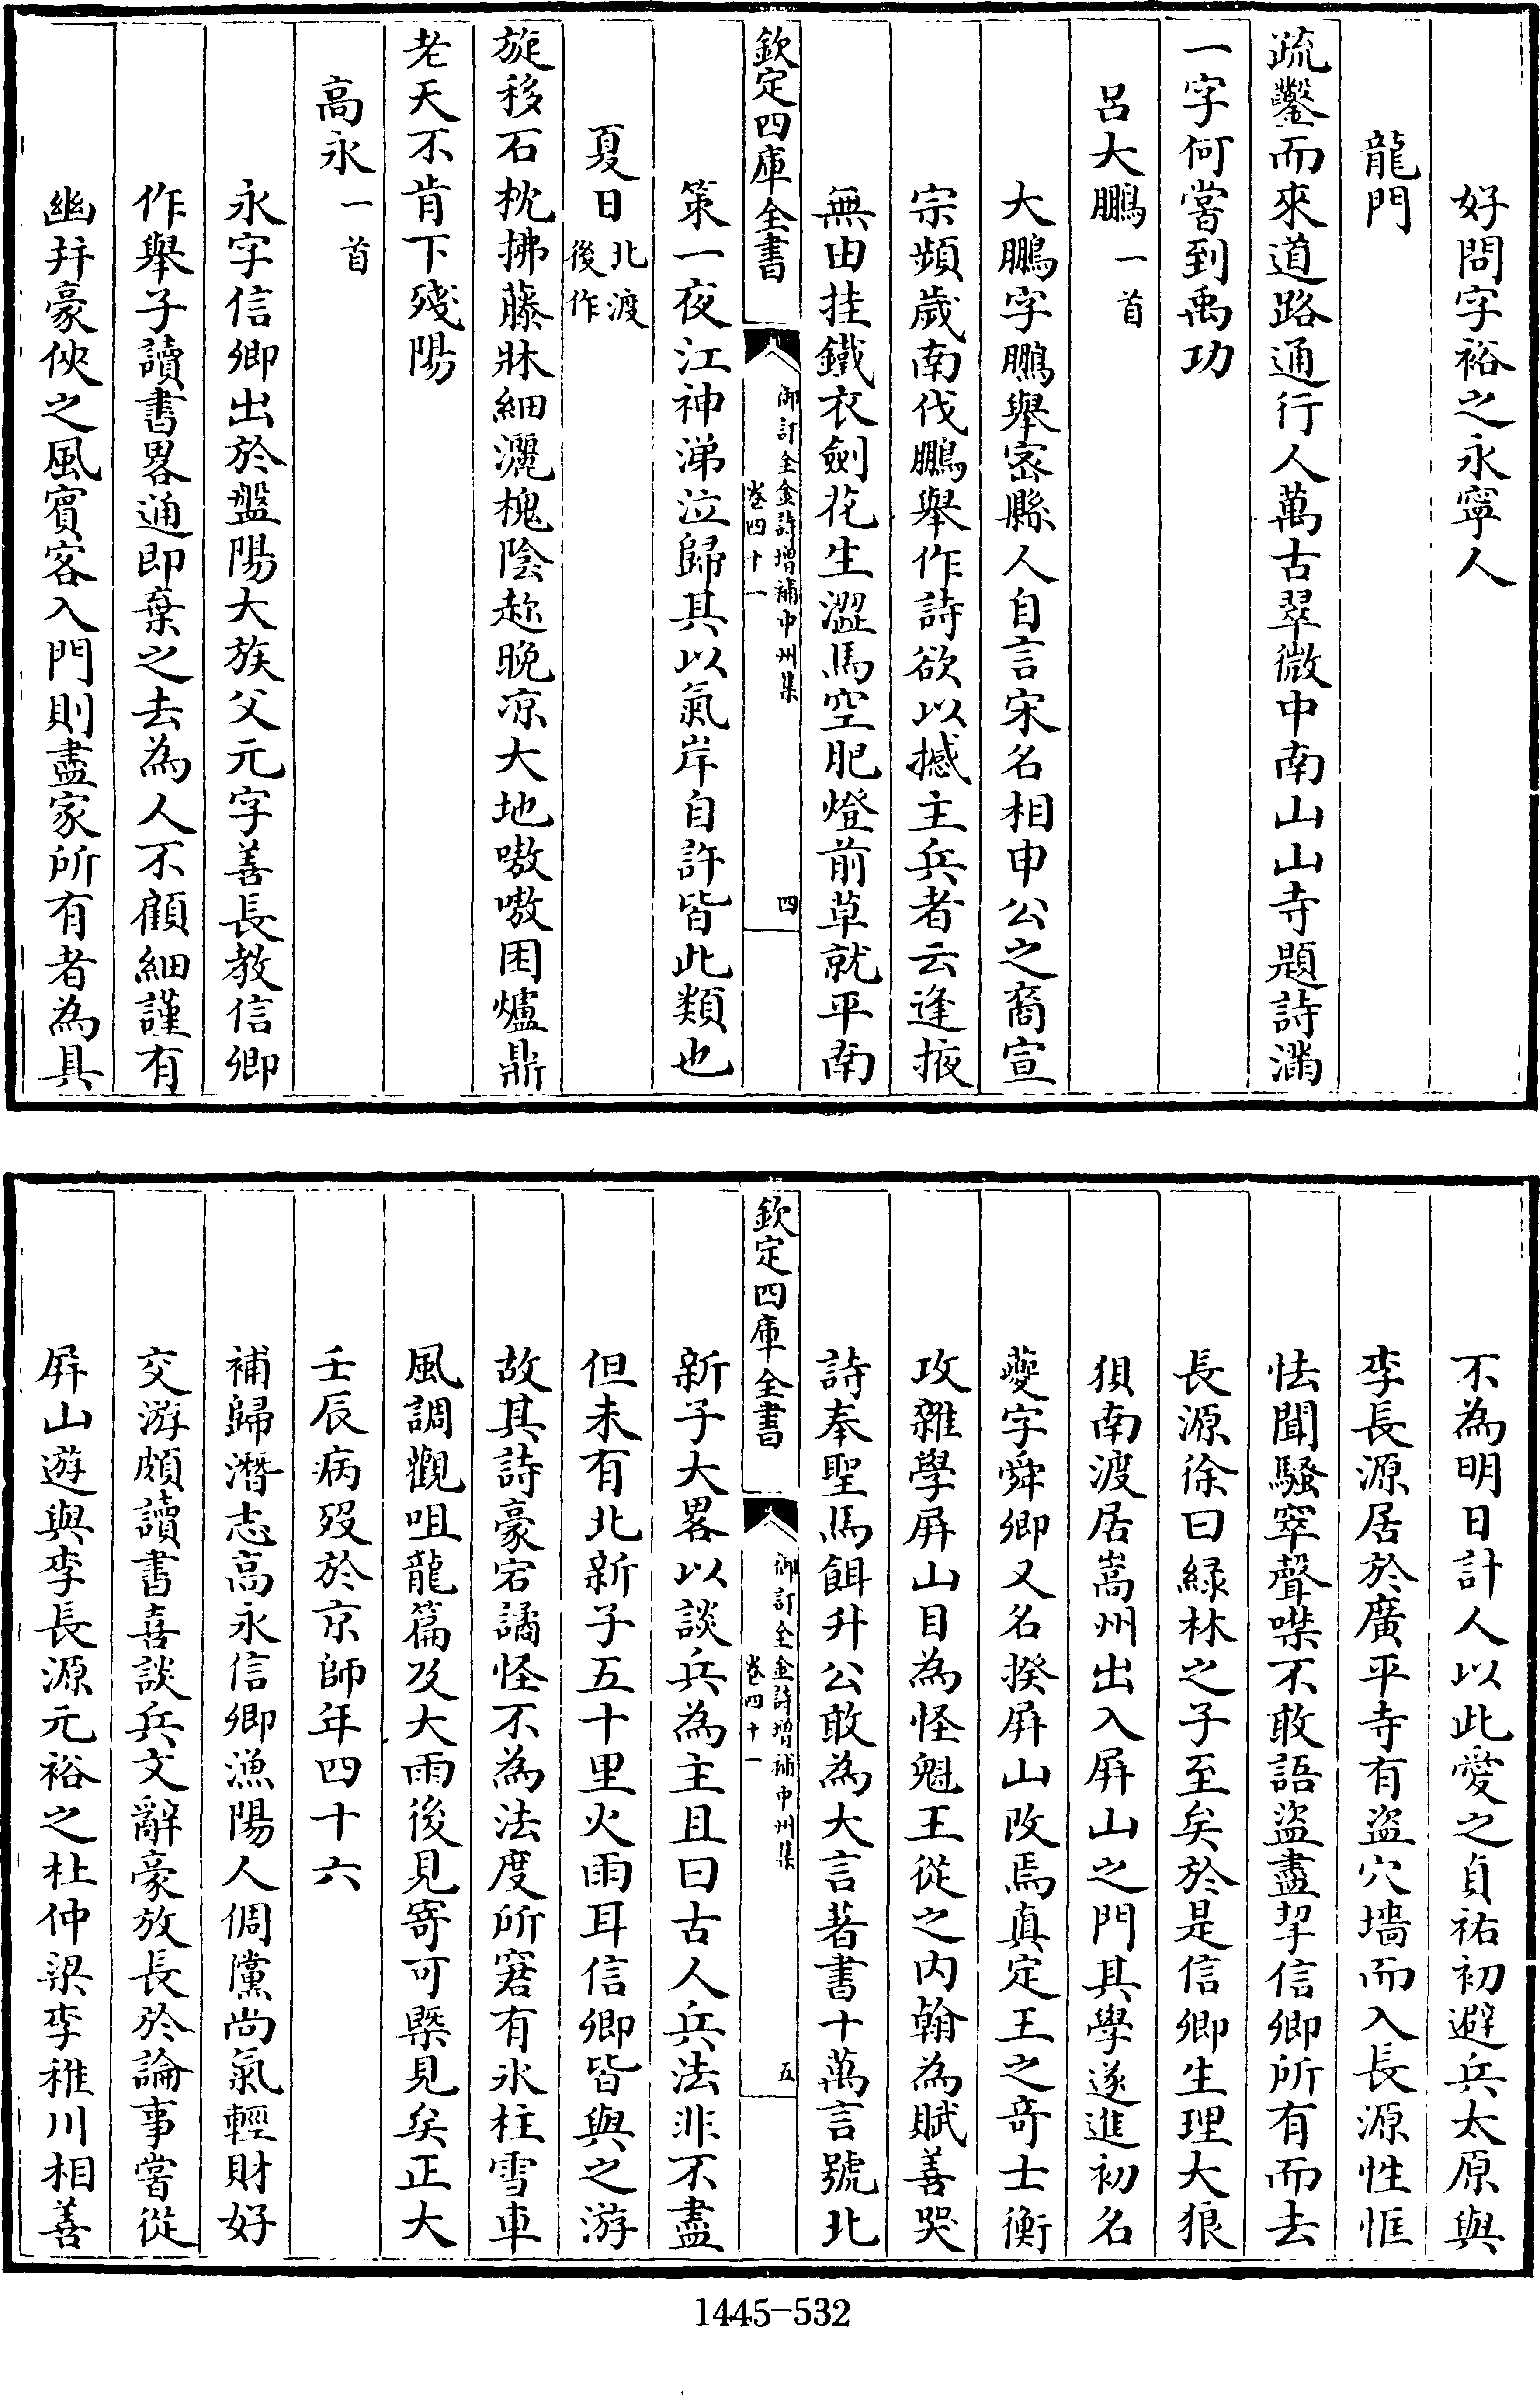 好問字裕之永寧人
龍門
疏鑿而來道路通行人萬古翠微中南山山寺題詩滿
一字何嘗到禹功
呂大鵬一首
大鵬字鵬舉密縣人自言宋名相申公之裔宣
宗頻歲南伐鵬舉作詩欲以撼主兵者云逢掖
無由挂鐵衣劍花生澀馬空肥燈前草就平南
欽定四庫全書
御訂全金詩增補中州集
卷四十一
四
策一夜江神涕泣歸其以氣岸自許皆此類也
夏日北渡後作
旋移石枕拂藤牀細灑槐陰趂晚凉大地嗷嗷困爐鼎
老天不肯下殘陽
高永一首
永字信卿出於盤陽大族父元字善長教信卿
作舉子讀書畧通即棄之去為人不顧細謹有
幽并豪俠之風賓客入門則盡家所有者為具
不為明日計人以此愛之貞祐初避兵太原與
李長源居於廣平寺有盜穴墻而入長源性恇
怯聞騷窣聲噤不敢語盜盡挈信卿所有而去
長源徐曰緑林之子至矣於是信卿生理大狼
狽南渡居嵩州出入屏山之門其學遂進初名
夔字舜卿又名揆屏山改焉真定王之奇士衡
攻雜學屏山目為怪魁王從之内翰為賦善哭
詩奉聖馬餌升公敢為大言著書十萬言號北
欽定四庫全書
御訂全金詩增補中州集
卷四十一
五
新子大畧以談兵為主且曰古人兵法非不盡
但未有北新子五十里火雨耳信卿皆與之游
故其詩豪宕譎怪不為法度所窘有氷柱雪車
風調觀咀龍篇及大雨後見寄可槩見矣正大
壬辰病殁於京師年四十六
補歸潛志高永信卿漁陽人倜儻尚氣輕財好
交游頗讀書喜談兵文辭豪放長於論事嘗從
屏山遊與李長源元裕之杜仲梁李稚川相善
1445-532